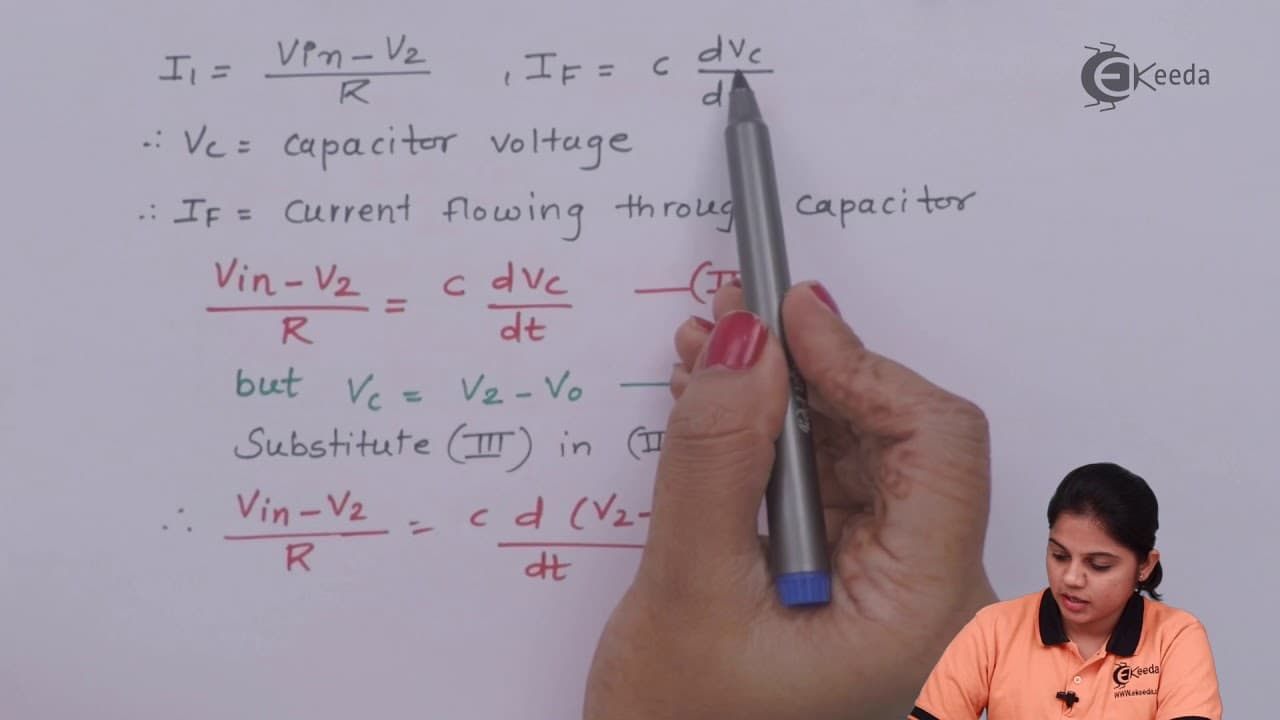 I1 = Vin - V2 / R , IF = c dVc / d
∴ Vc = capacitor voltage
∴ IF = current flowing through capacitor
Vin - V2 / R = c dVc / dt —(II
but Vc = V2 - Vo —
Substitute (III) in (II
∴ Vin - V2 / R = c d (V2 - / dt
Ekeeda
Ekeeda